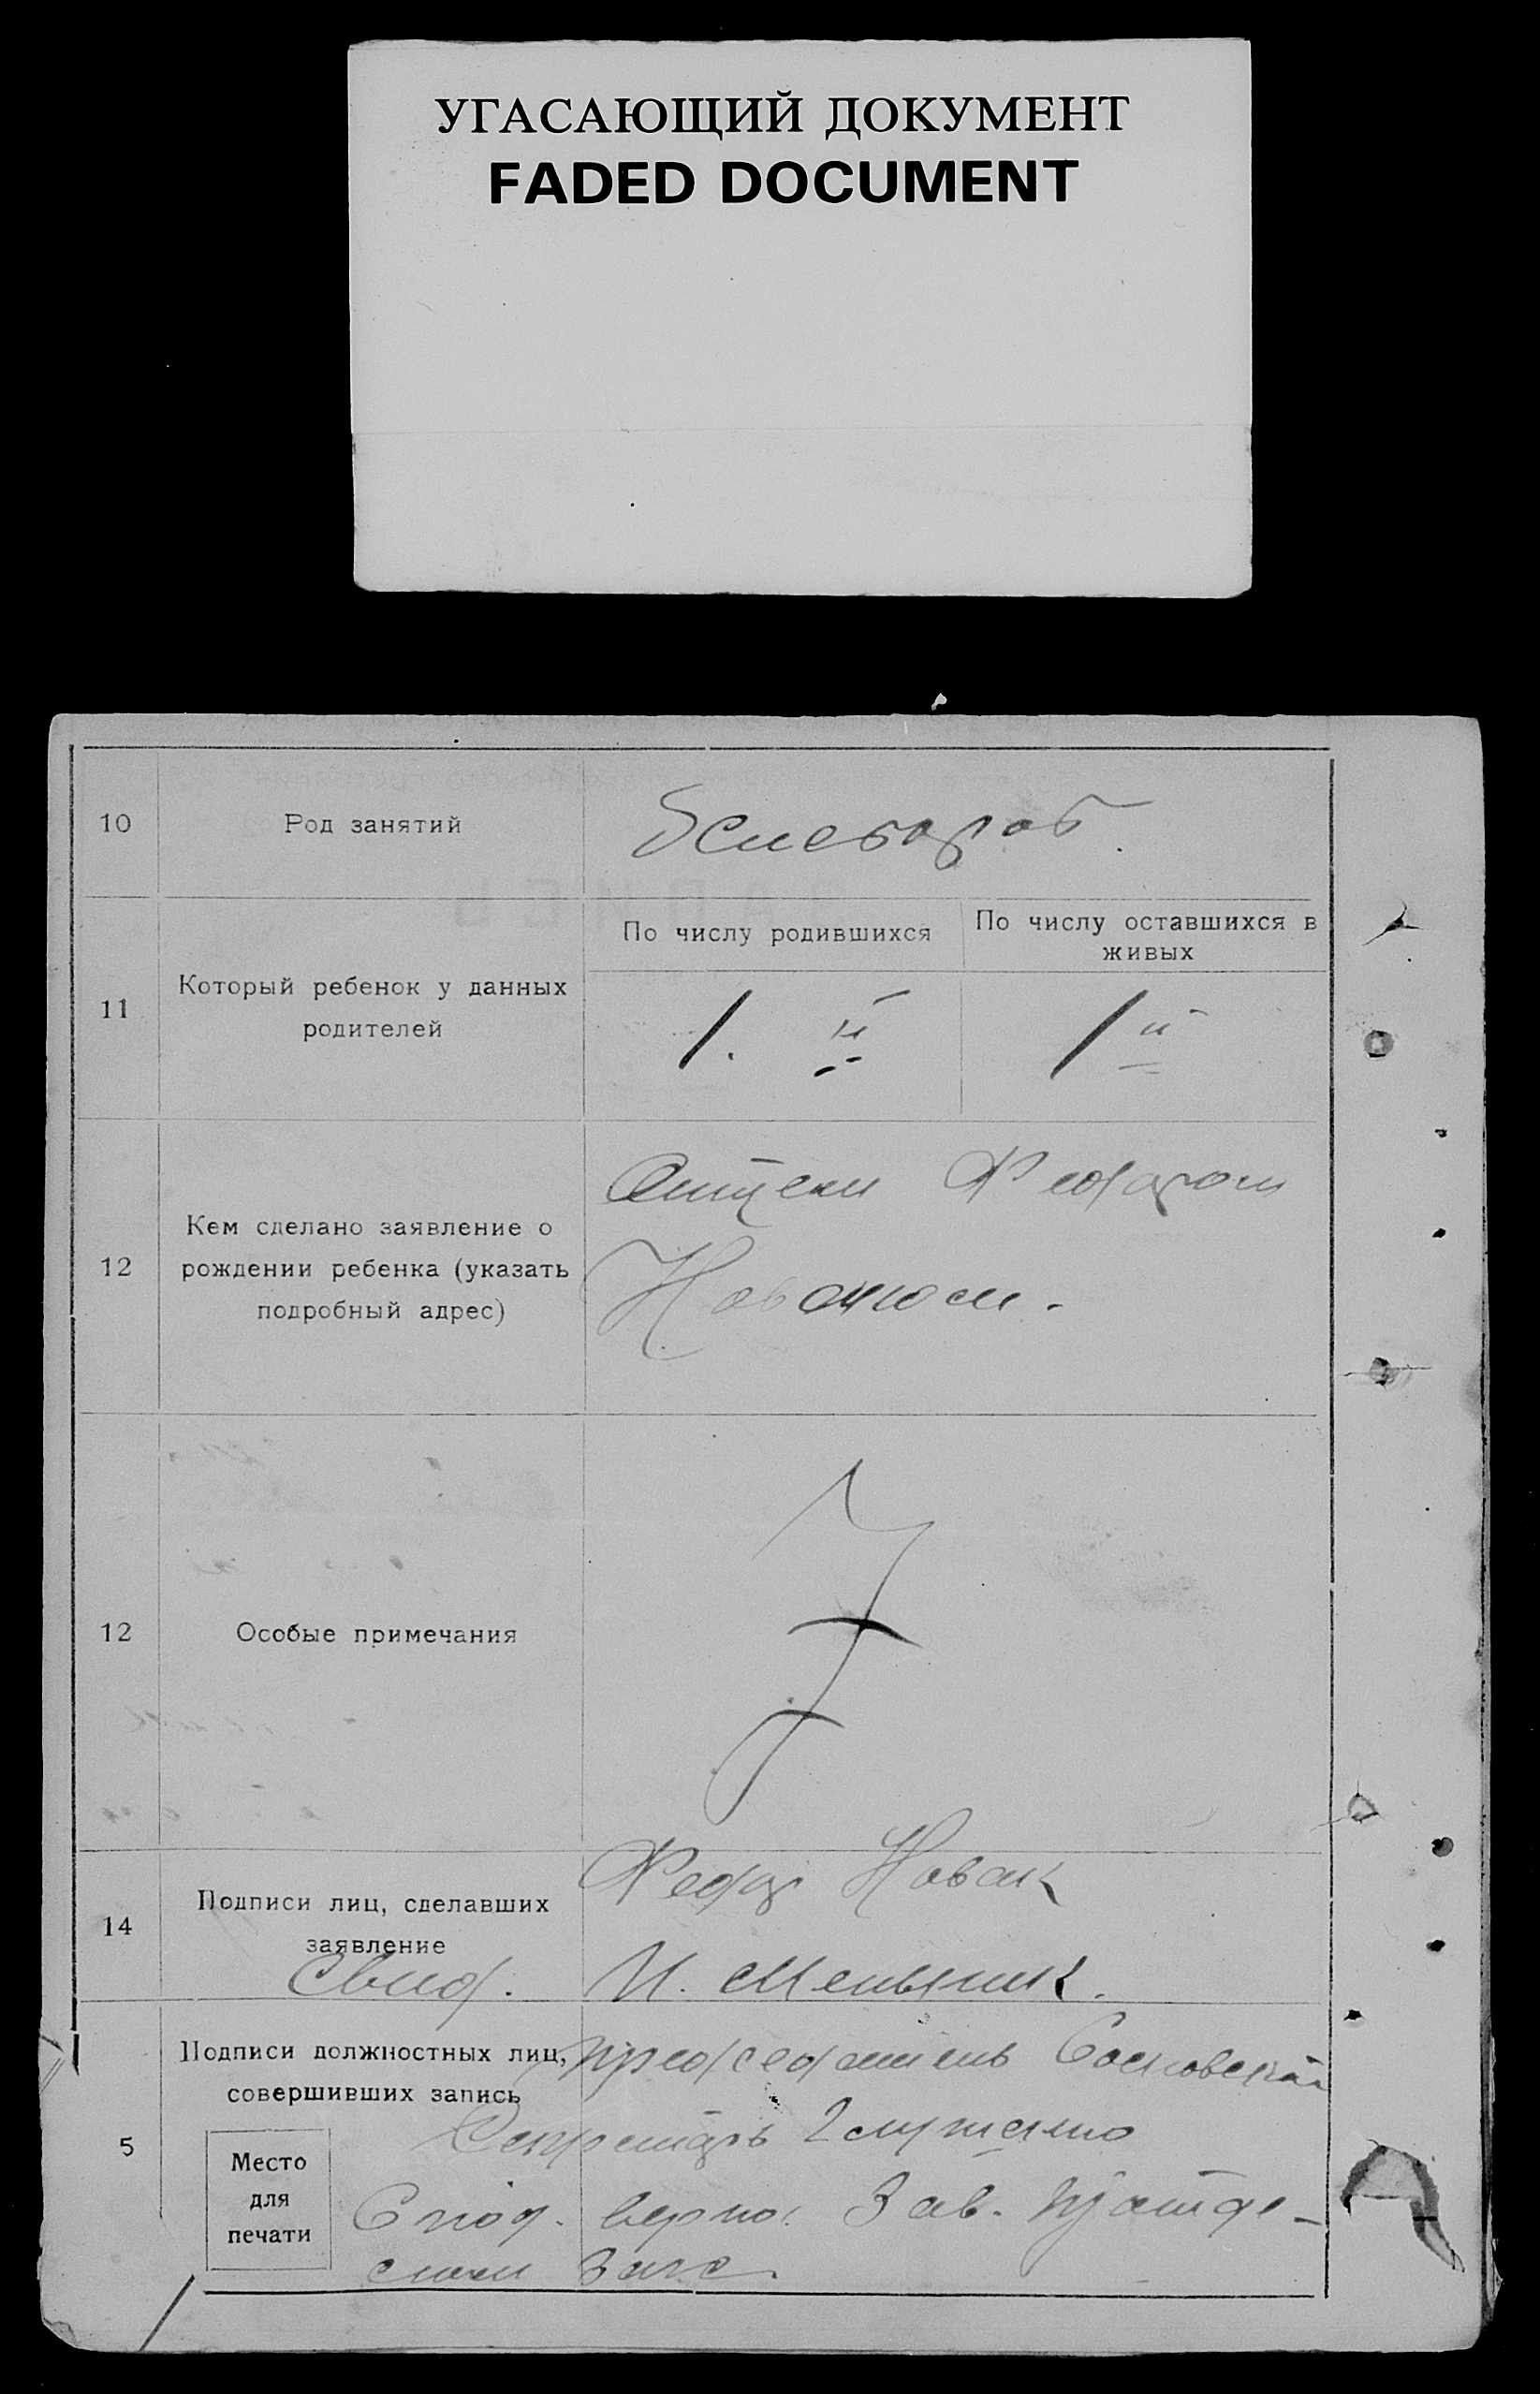 УГАСАЮЩИЙ ДОКУМЕНТ
FADED DOCUMENT
10
Род занятий
11
Который ребенок у данных
родителей
По числу родившихся
По числу оставшихся в
живых
1. й
1 й
12
Кем сделано заявление о
рождении ребенка (указать
подробный адрес)
Отцем Федором
Новаком.
12
Особые примечания
14
Подписи лиц, сделавших
заявление
Федор Новак
Свид. И. Мельник.
5
Подписи должностных лиц,
совершивших запись
Место
для
печати
председатель
Секретарь
С под. верно: Зав.
Загс.